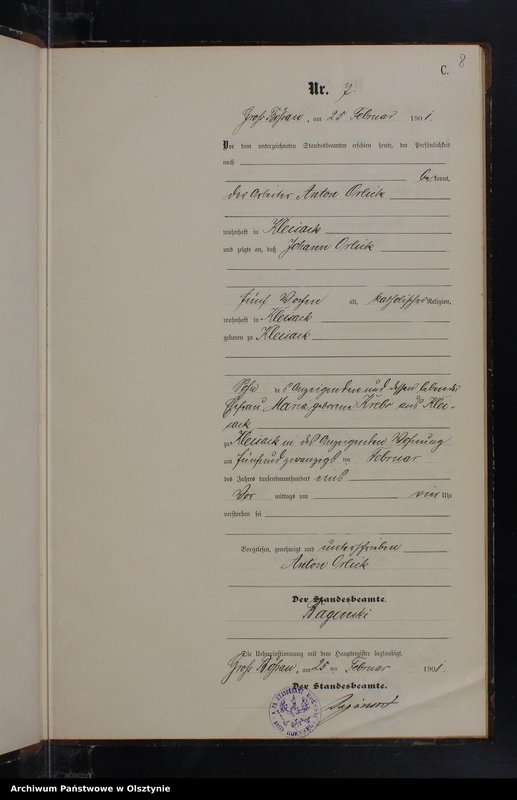 8
C.
Nr. 7.
Groß , am 25 Februar 1901.
Vor dem unterzeichneten Standesbeamten erschien heute, der Persönlichkeit
nach
be kannt,
der Arbeiter Anton Orlick
wohnhaft in Kleisack
und zeigte an, daß Johann Orlick
fünf Wochen alt, katholischer Religion,
wohnhaft in Kleisack
geboren zu Kleisack
Sohn des Anzeigenden und dessen lebenden
Ehefrau Maria geborene aus Klei-
sack
zu Kleisack in des Anzeigenden Wohnung
am fünfundzwanzigsten Februar
des Jahres tausendneunhundert eins
Vor mittags um vier Uhr
verstorben sei
Vorgelesen, genehmigt und unterschrieben
Anton Orlick
Der Standesbeamte.
Baginski
Die Uebereinstimmung mit dem Hauptregister beglaubigt.
Groß , am 25 ten Februar 1901.
Der Standesbeamte.
Archiwum Państwowe w Olsztynie